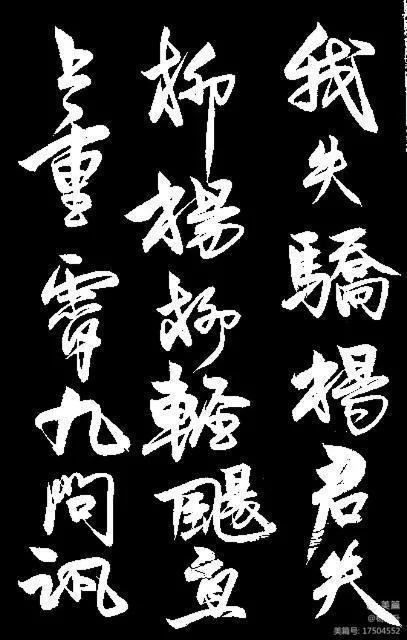 我失驕楊君失
柳楊柳輕颺直
上重霄九問訊
美篇
美篇号: 17504552